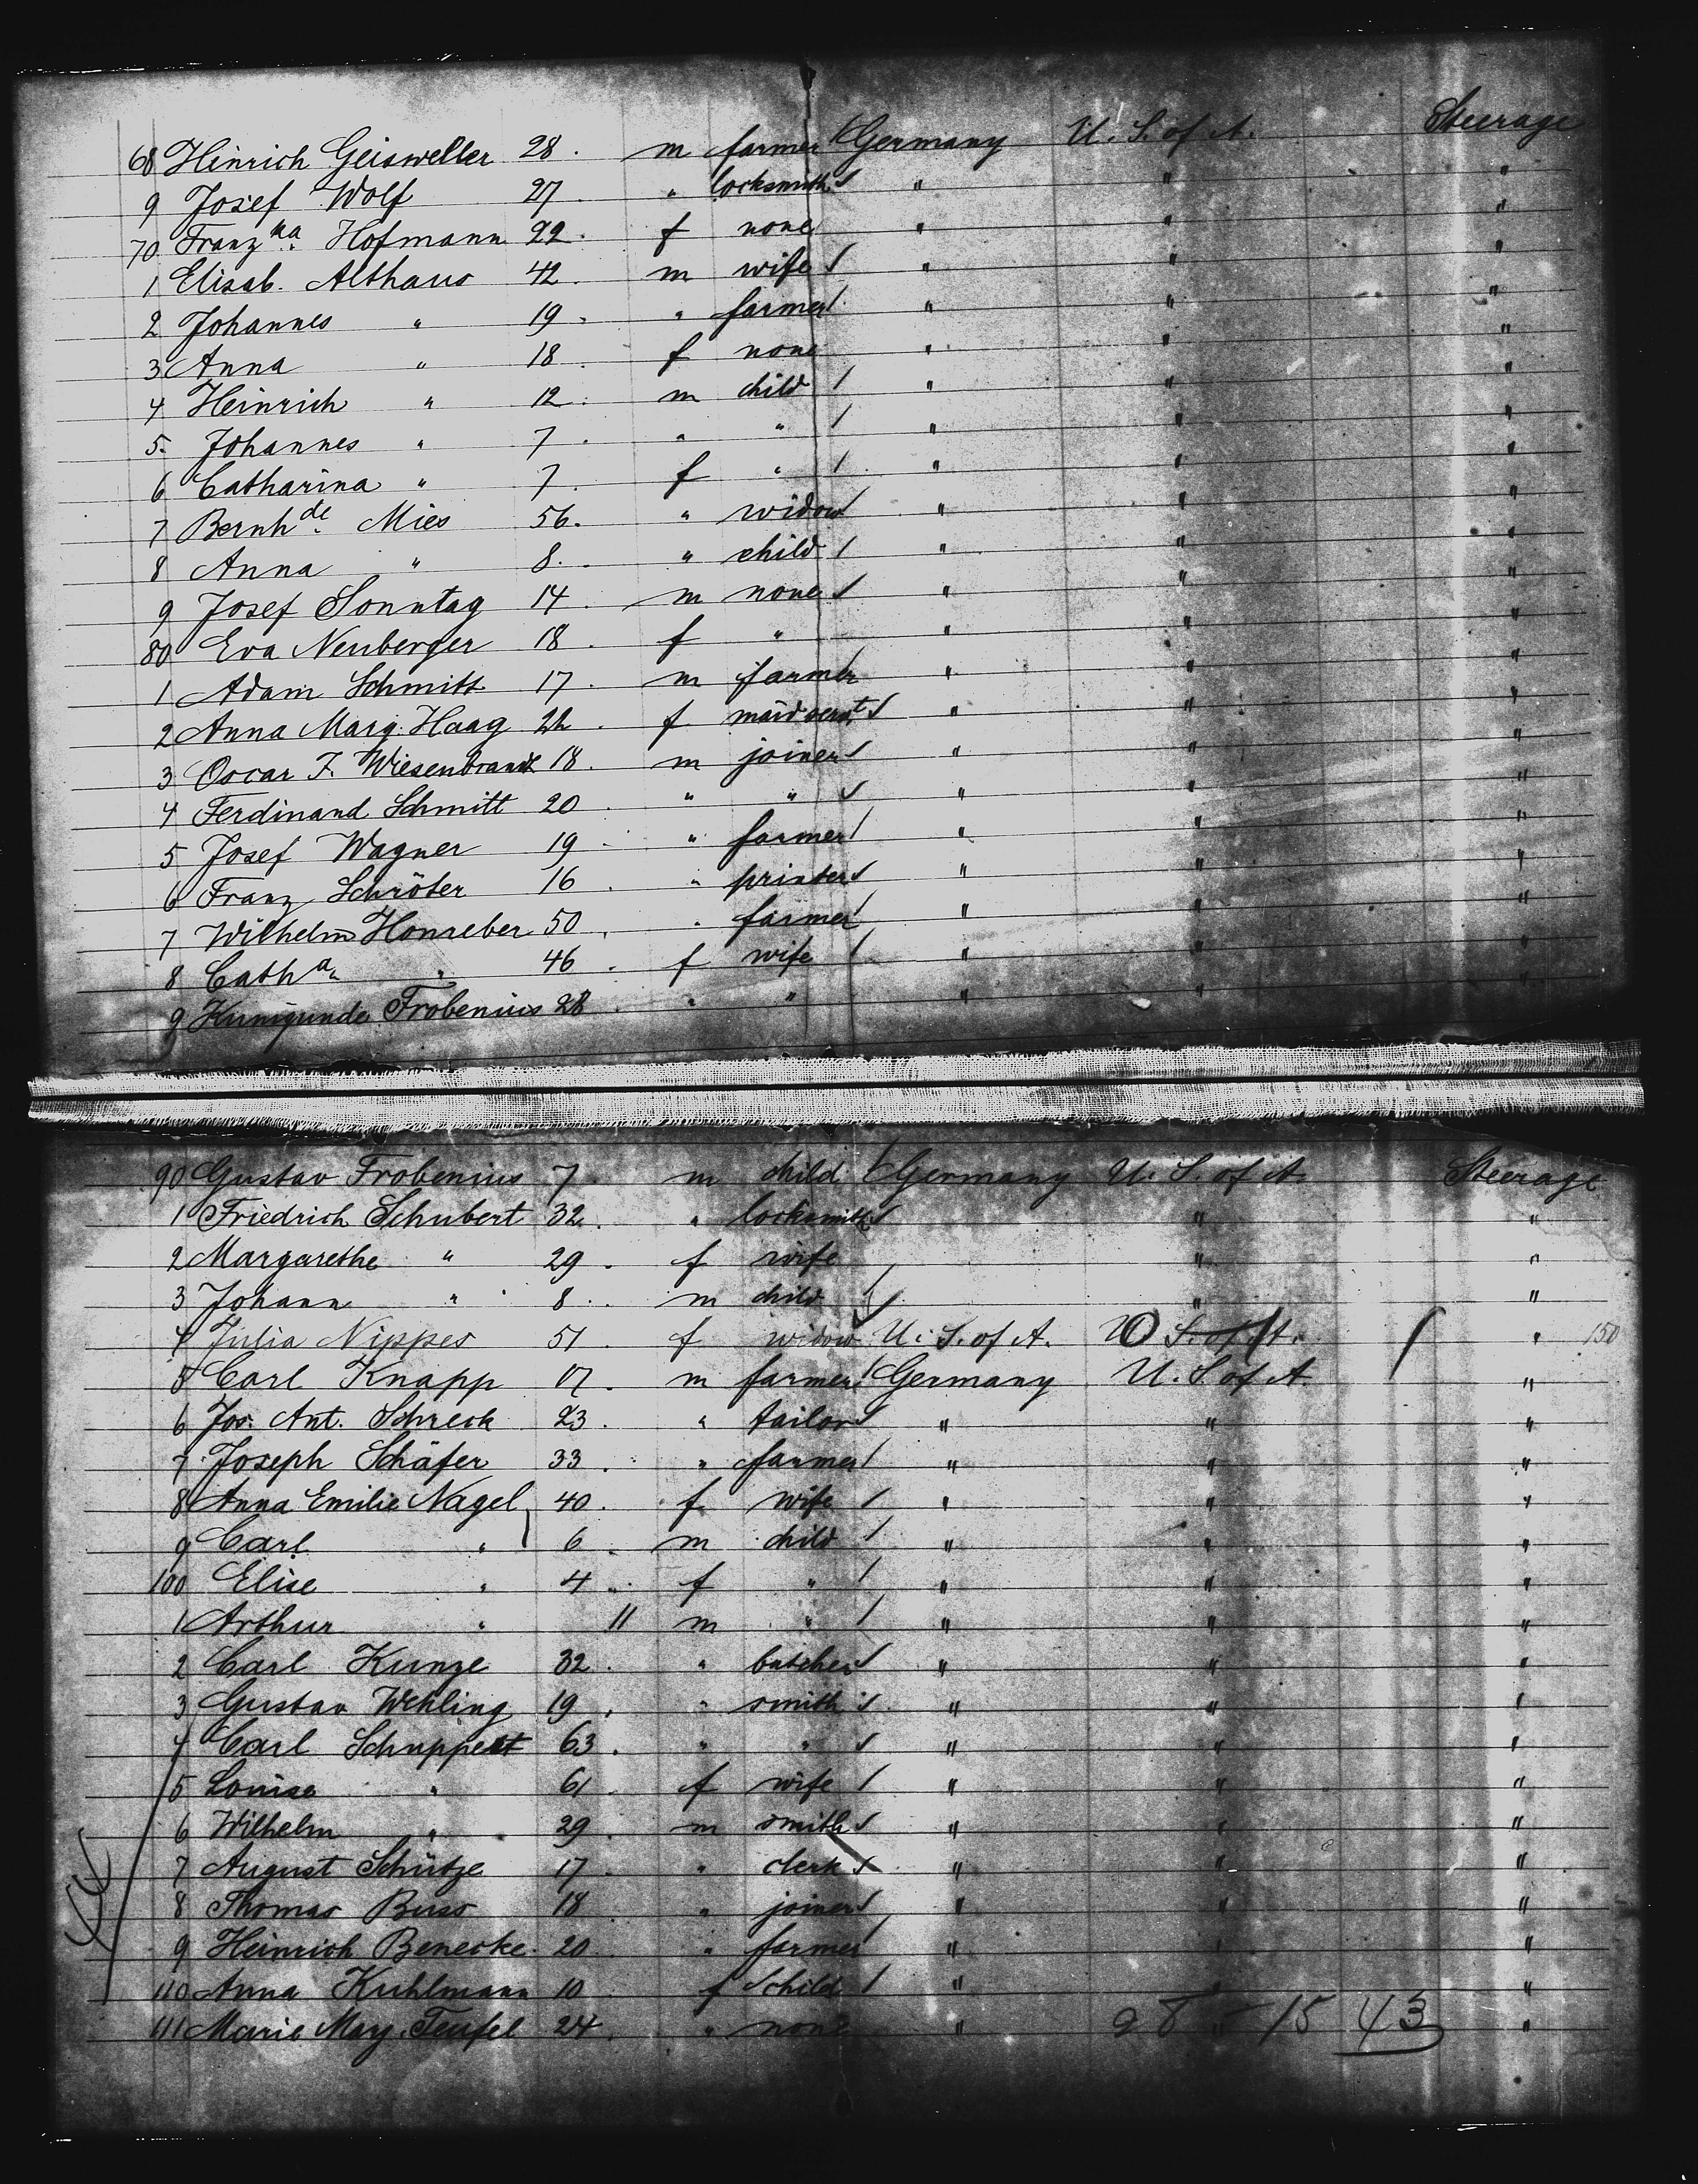 68 Hinrich Geisweller 28. m farmer Germany U. S. of A. Steerage
9 Josef Wolf 27. " locksmith " " "
70 Franz ka. Hofmann 22. f none " " "
1 Elisab. Althaus 42. m wife " " "
2 Johannes " 19. " farmer " " "
3 Anna " 18. f none " " "
4 Heinrich " 12. m child " " "
5. Johannes " 7. " " " " "
6 Catharina " 7. f " " " "
7 Bernh de. Mies 56. " widow " " "
8 Anna " 8. " child " " "
9 Josef Sonntag 14. m none " " "
80 Eva Neuberger 18. f " " " "
1 Adam Schmitt 17. m farmer " " "
2 Anna Marg. Haag 22. f maid servt " " "
3 Oscar F. Wiesenbrandt 18. m joiner " " "
4 Ferdinand Schmitt 20. " " " " "
5 Josef Wagner 19. " farmer " " "
6 Franz Schröter 16. " printer " " "
7 Wilhelm Honreber 50. " farmer " " "
8 Catha. " 46. f wife " " "
9 Kunigunde Frobenius 28. " " " " "
90 Gustav Frobenius 7. m child Germany U. S. of A. Steerage
1 Friedrich Schubert 32. " locksmith " "
2 Margarethe " 29. f wife " "
3 Johann " 8. m child " "
4 Julia Nippes 51 f widow U. S. of A. U. S. of A. " 150
5 Carl Knapp 17. m farmer Germany U. S of A. "
6 Jos. Ant. Schreck 23. " tailor " " "
7 Joseph Schäfer 33. " farmer " " "
8 Anna Emilie Nagel 40. f wife " " "
9 Carl " 6. m child " " "
100 Elise " 4. f " " " "
1 Arthur " 11 m " " " "
2 Carl Kunze 32. " butcher " " "
3 Gustav Wehling 19. " smith " " "
4 Carl Schuppert 63. " " " " "
5 Louise " 61 f wife " " "
6 Wilhelm " 29. m smith " " "
7 August Schütze 17. " clerk " " "
8 Thomas Buss 18 " joiner " " "
9 Heinrich Benecke 20 " farmer " " "
110 Anna Kuhlmann 10 f child " " "
111 Marie Marg. Teufel 24. " none " " "
28 - 15 43